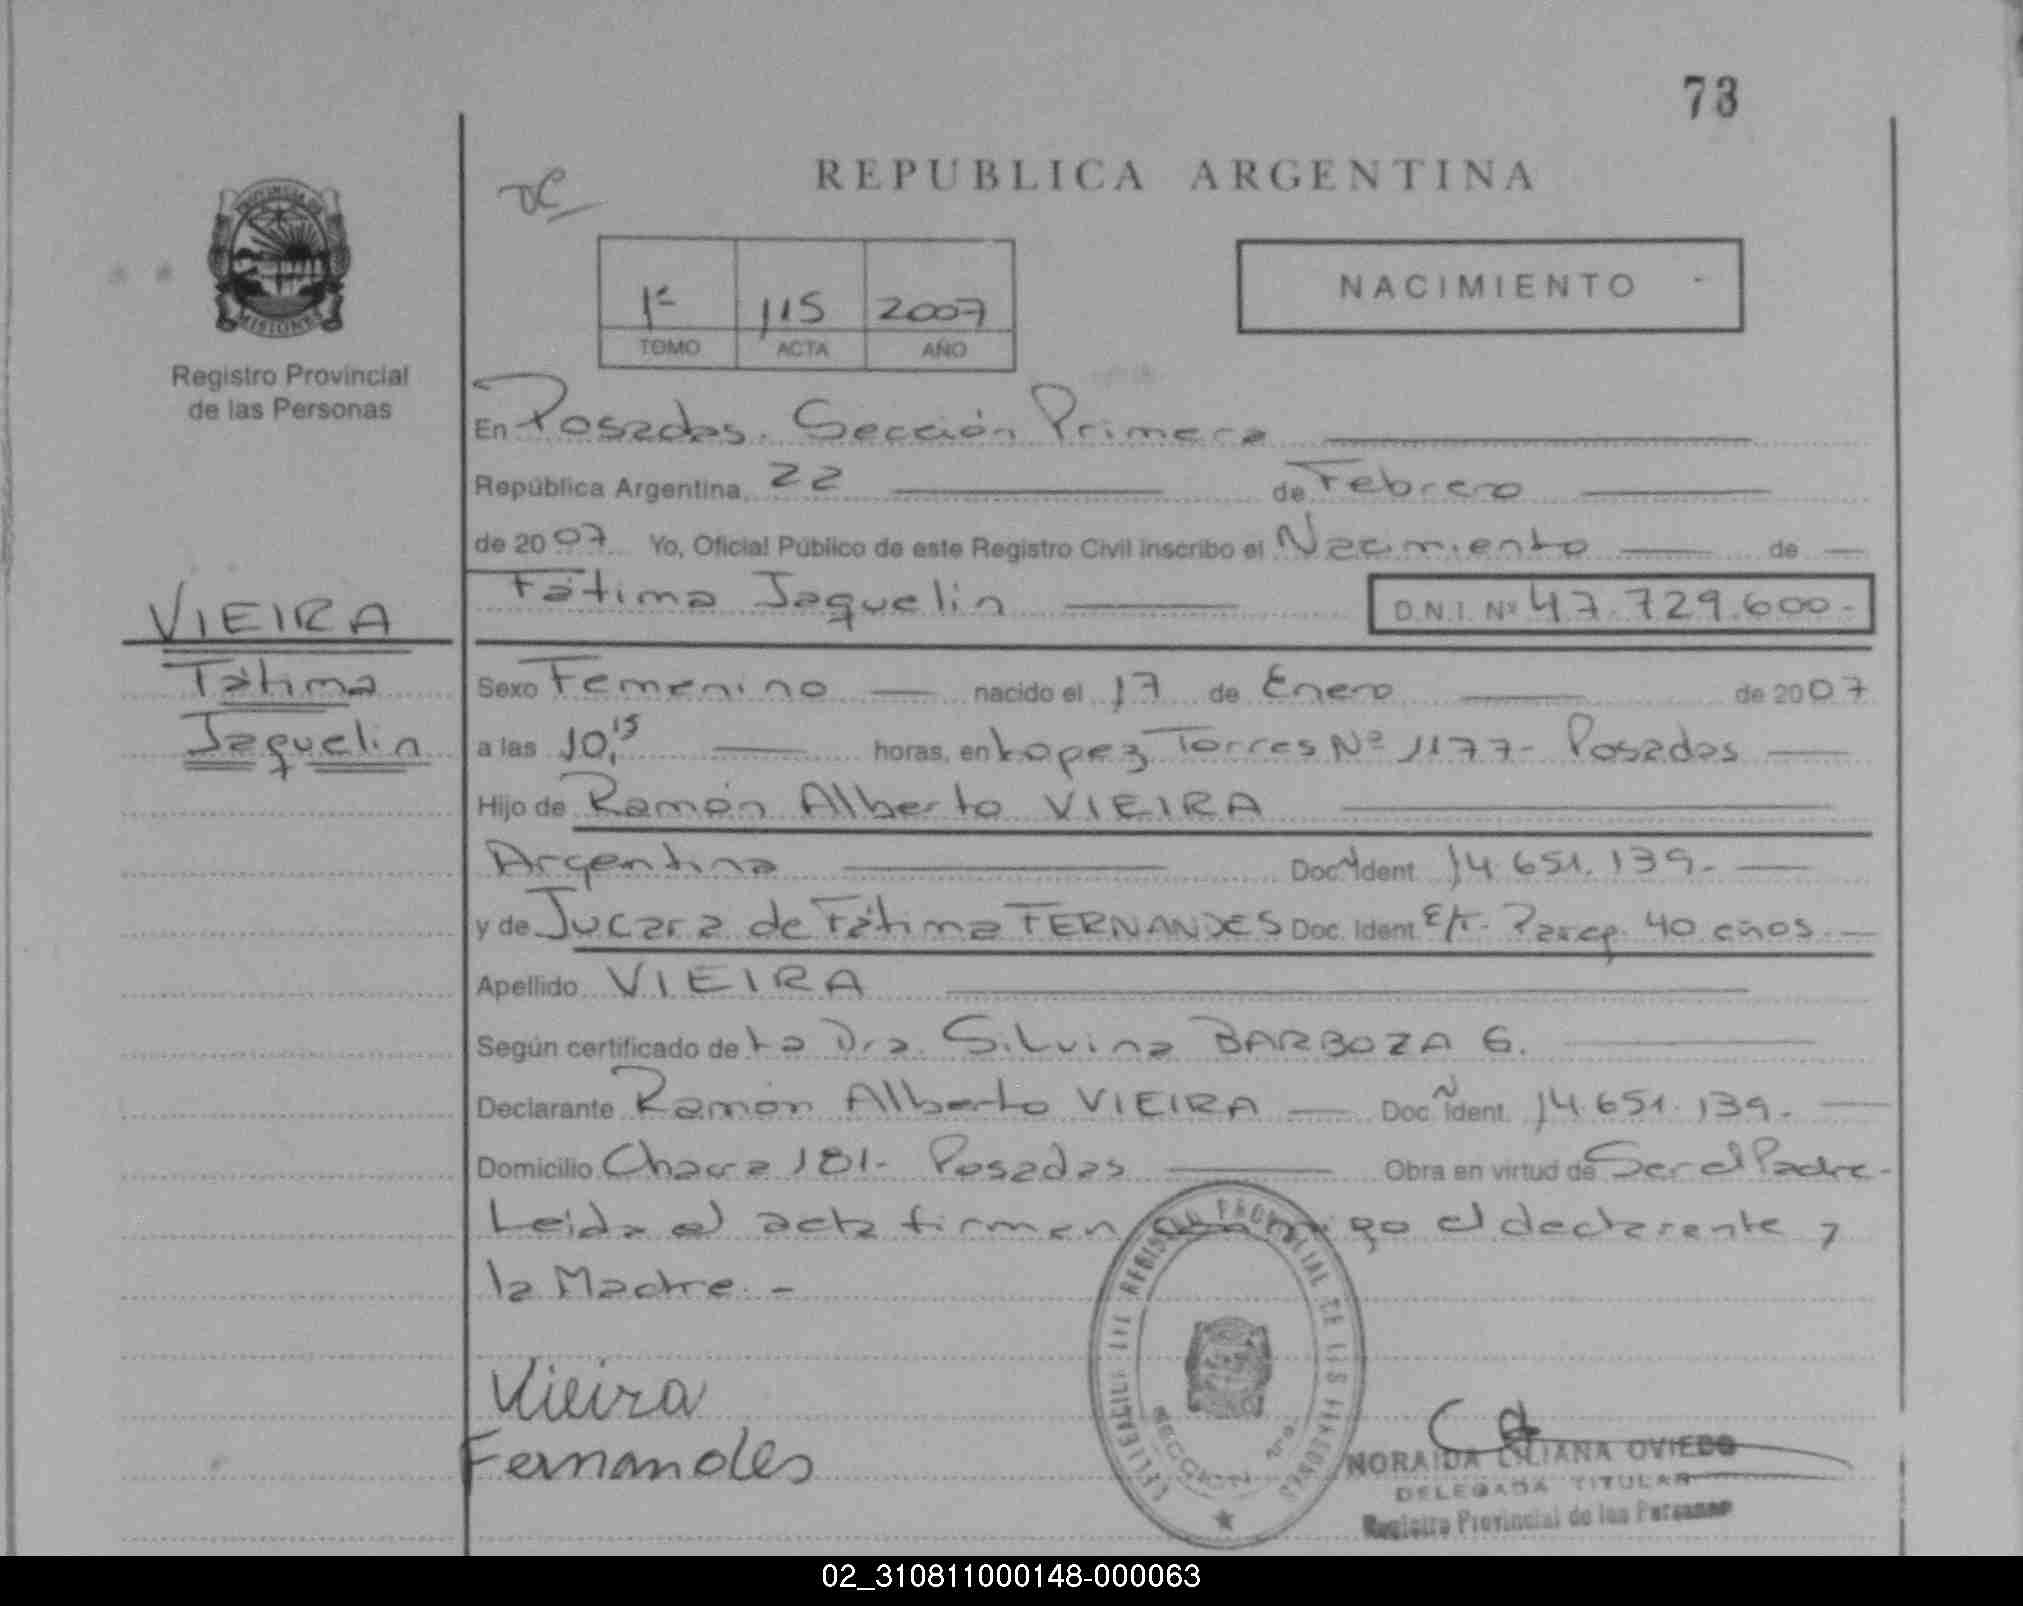 73
REPUBLICA ARGENTINA
PROVINCIA DE
MISIONES
Registro Provincial
de las Personas
1º 115 2007
TOMO ACTA AÑO
NACIMIENTO
En Posadas. Sección Primera
República Argentina 22 de Febrero
de 2007 Yo, Oficial Público de este Registro Civil inscribo el Nacimiento de
Fátima Jaquelin D.N.I. Nº 47.729.600.-
VIEIRA
Fátima
Jaquelin
Sexo Femenino nacido el 17 de Enero de 2007
a las 10,15 horas, en Lopez Torres Nº 1177- Posadas
Hijo de Ramón Alberto VIEIRA
Argentina Doc Ident 14.651.139.-
y de Jucara de Fátima FERNANDES Doc. Ident 40 años.
Apellido VIEIRA
Según certificado de La Dra. Silvina BARBOZA G.
Declarante Ramón Alberto VIEIRA Doc Ident. 14.651.139.
Domicilio Chacra 181- Posadas Obra en virtud de Ser el Padre-
Leida el acta firman conmigo el declarante y
la Madre.-
Vieira
Fernandes
REGISTRO PROVINCIAL DE LAS PERSONAS
SECCION 1ra.
NORAIDA LILIANA OVIEDO
DELEGADA TITULAR
Registro Provincial de las Personas
02_310811000148-000063